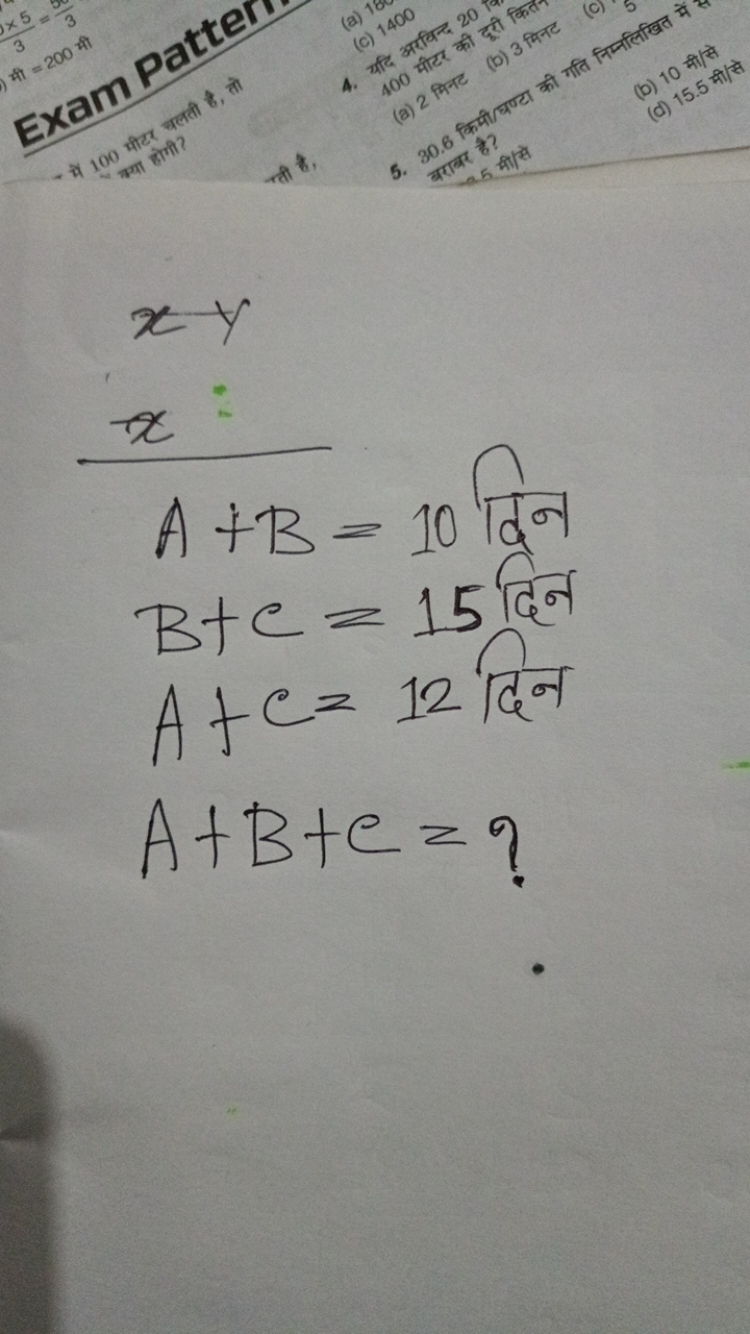 × 5
3
=
3
मी = 200 मी
Exam Pattern
में 100 मीटर चलती है, तो
क्या होगी?
(c) 1400
4. यदि अरविन्द 20
400 मीटर की दूरी
(a) 2 मिनट (b) 3 मिनट (c)
5
5. 30.6 किमी/घण्टा की गति निम्नलिखित में
बराबर है?
.5 मी/से
(b) 10 मी/से
(d) 15.5 मी/से
x Y
x
A + B = 10 दिन
B + C = 15 दिन
A + C = 12 दिन
A + B + C = ?